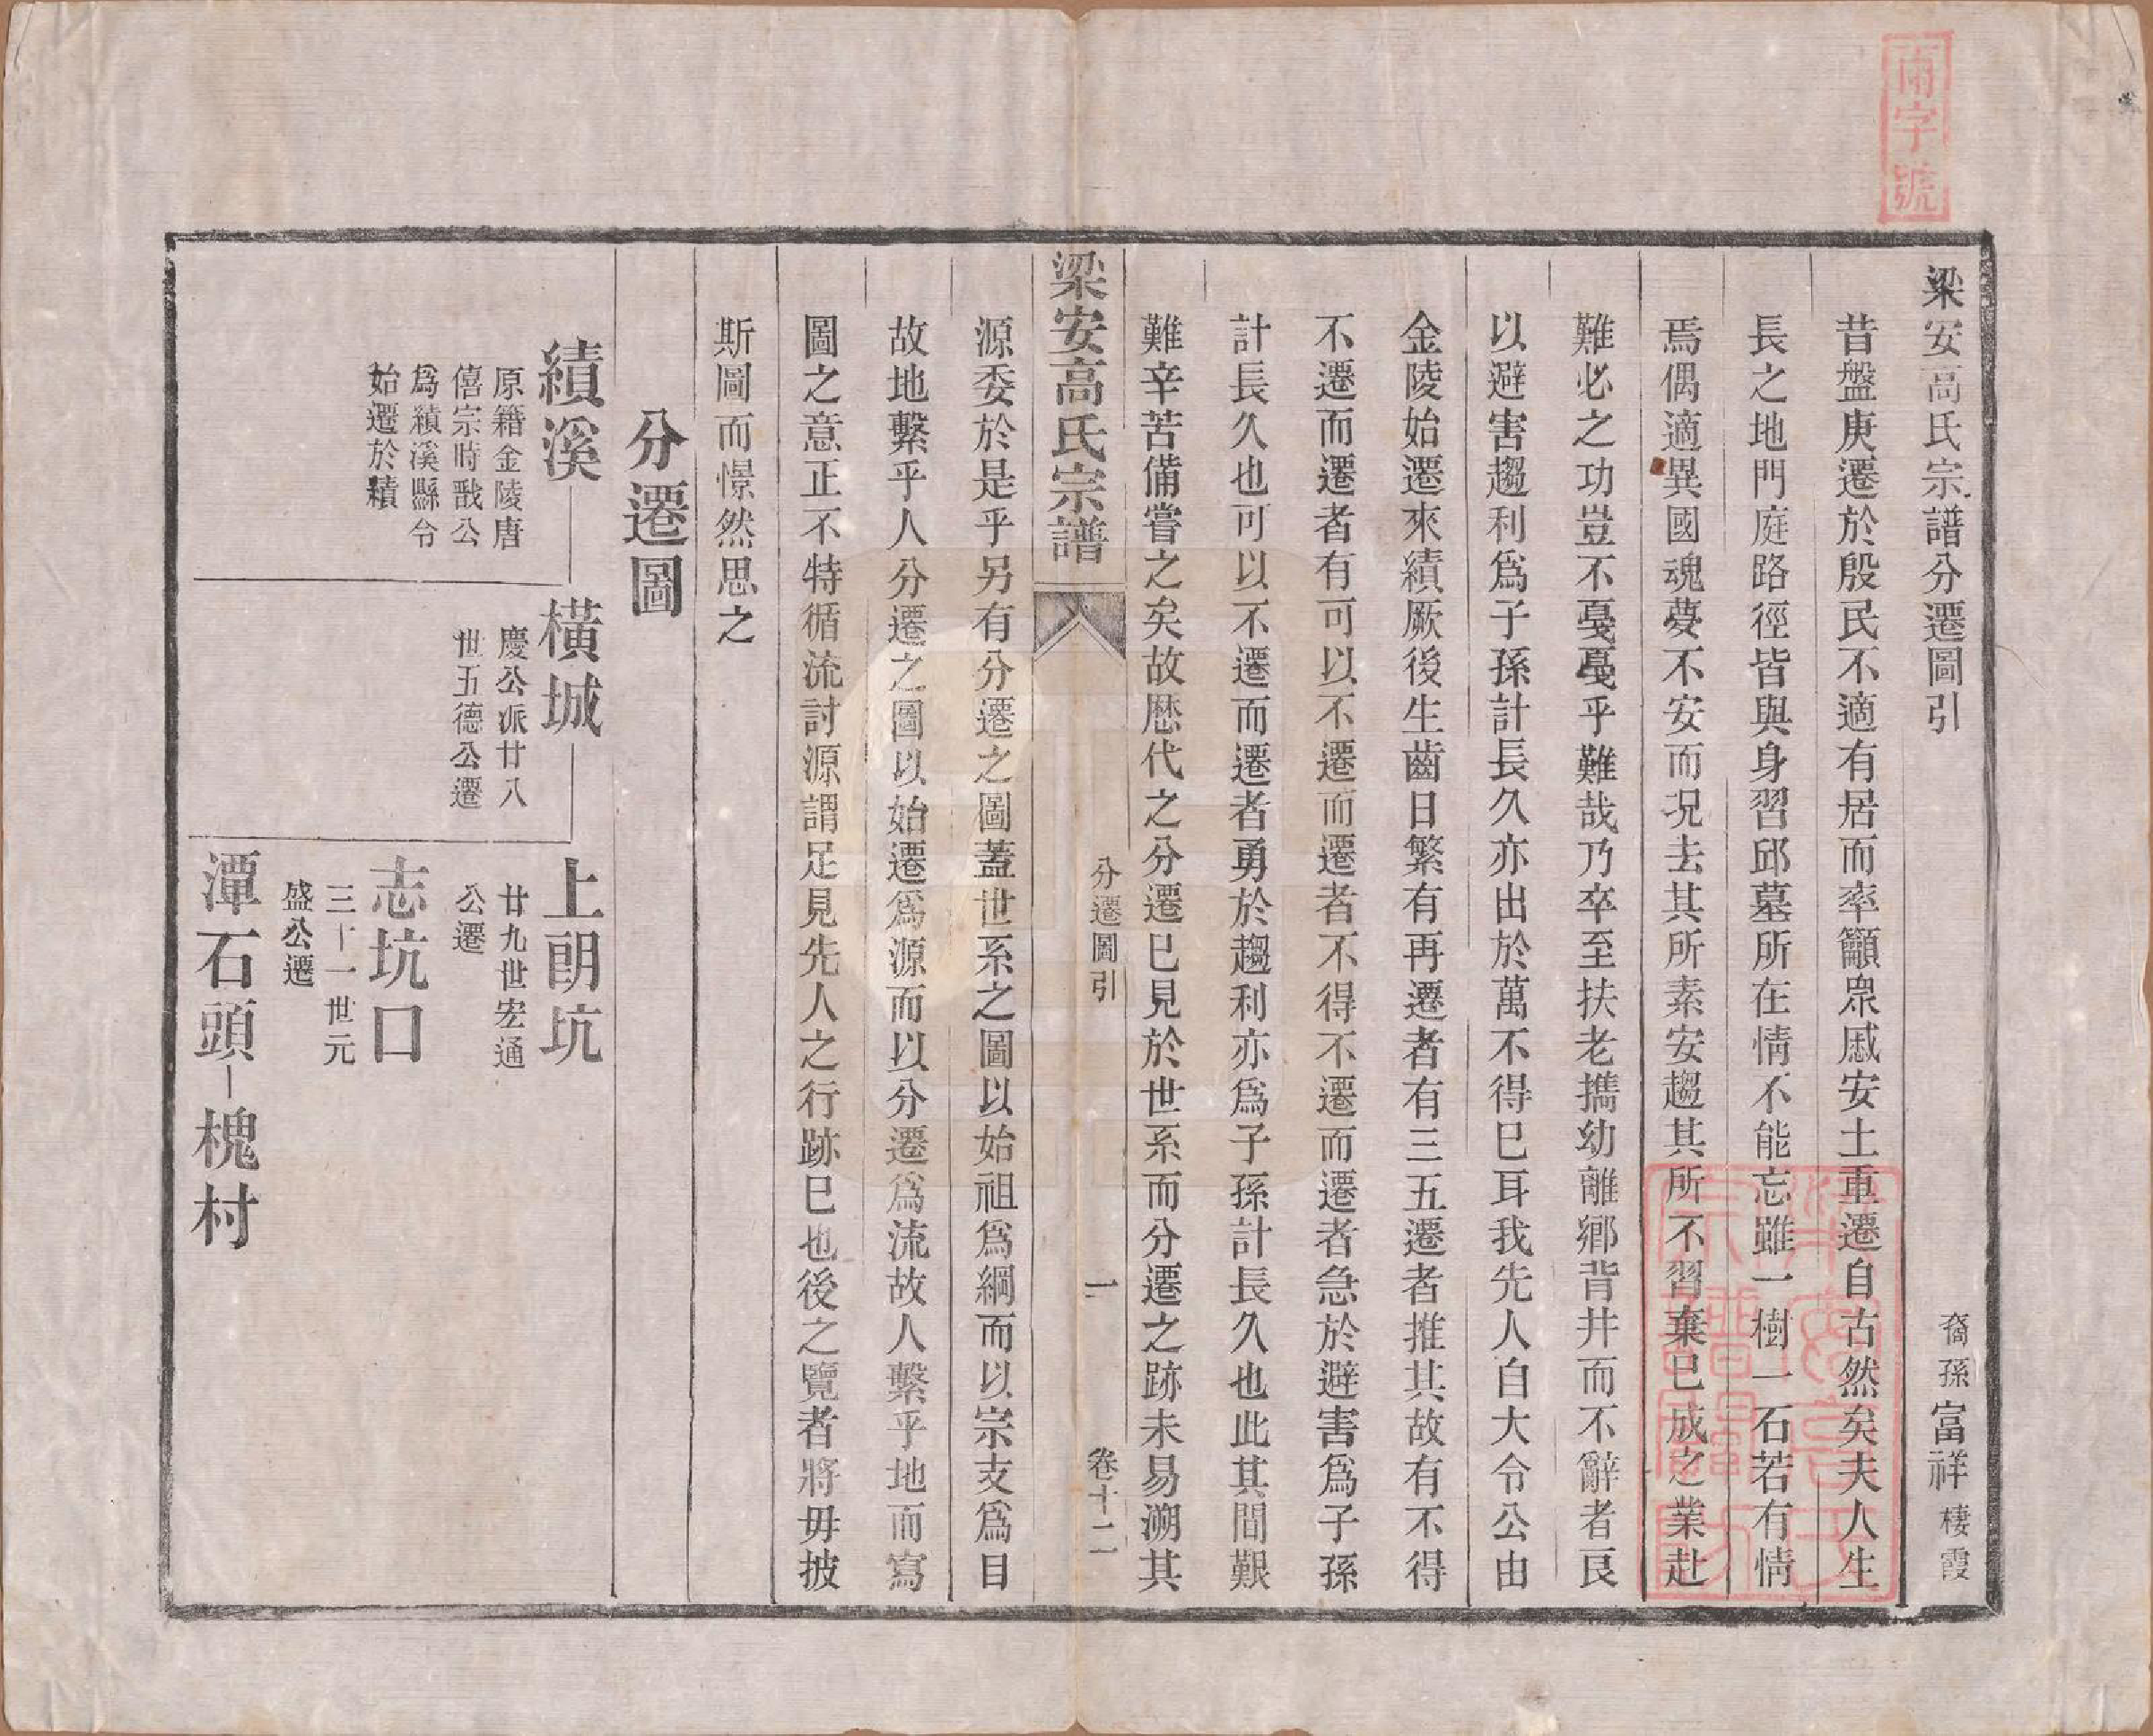 雨字號
梁安高氏宗譜分遷圖引
裔孫富祥棲霞
昔盤庚遷於殷民不適有居而率籲眾戚安土重遷自古然矣夫人生
長之地門庭路徑皆與身習邱墓所在情不能忘雖一樹一石若有情
焉偶適異國魂夢不安而況去其所素安趨其所不習棄已成之業赴
難必之功豈不戞戞乎難哉乃卒至扶老攜幼離鄉背井而不辭者良
以避害趨利為子孫計長久亦出於萬不得已耳我先人自大令公由
金陵始遷來績厥後生齒日繁有再遷者有三五遷者推其故有不得
不遷而遷者有可以不遷而遷者不得不遷而遷者急於避害為子孫
計長久也可以不遷而遷者勇於趨利亦為子孫計長久也此其間艱
難辛苦備嘗之矣故歷代之分遷已見於世系而分遷之跡未易溯其
梁安高氏宗譜
分遷圖引
一
卷十二
源委於是乎另有分遷之圖蓋世系之圖以始祖為綱而以宗支為目
故地繫乎人分遷之圖以始遷為源而以分遷為流故人繫乎地而寫
圖之意正不特循流討源謂足見先人之行跡已也後之覽者將毋披
斯圖而憬然思之
分遷圖
績溪
原籍金陵唐
僖宗時戩公
為績溪縣令
始遷於績
橫城
慶公派廿八
世五德公遷
上朗坑
廿九世宏通
公遷
志坑口
三十一世元
盛公遷
潭石頭
槐村